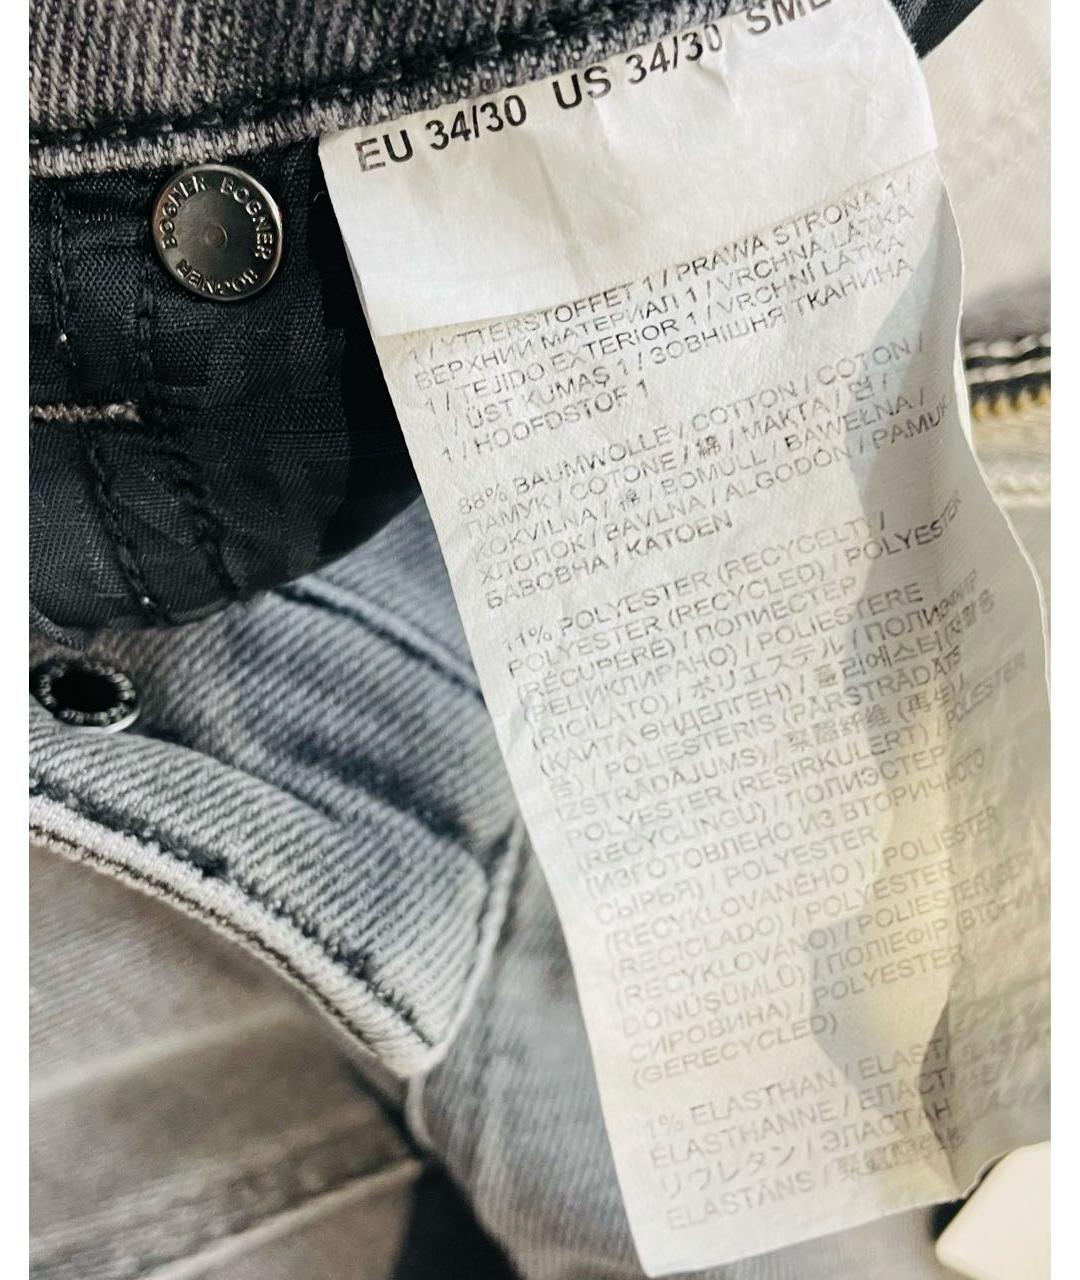 EU 34/30 US 34/30
BOGNER BOGNER BOGNER BOGNER
1 / YTTERSTOFFET 1 / PRAWA STRONA 1 /
ВЕРХНИЙ МАТЕРИАЛ 1 / VRCHNÁ LÁTKA
1 / TEJIDO EXTERIOR 1 / VRCHNÍ LÁTKA
1 / ÜST KUMAŞ 1 / ЗОВНІШНЯ ТКАНИНА
1 / HOOFDSTOF 1
88% BAUMWOLLE / COTTON / COTON /
ПАМУК / COTONE / 綿 / МАКТА / 면 /
KOKVILNA / 棉 / BOMULL / BAWEŁNA /
ХЛОПОК / BAVLNA / ALGODÓN / PAMUK
БАВОВНА / KATOEN
11% POLYESTER (RECYCELT) /
POLYESTER (RECYCLED) / POLYESTER
(RÉCUPÉRÉ) / ПОЛИЕСТЕР
(РЕЦИКЛИРАНО) / POLIESTERE
(RICILATO) / ポリエステル / ПОЛИЭФИР
(КАЙТА ӨҢДЕЛГЕН) / 폴리에스터 (재활용
용) / POLIESTERIS (PĀRSTRĀDĀTS
IZSTRĀDĀJUMS) / 聚酯纤维 (再生) /
POLYESTER (RESIRKULERT) / POLIESTER
(RECYCLINGU) / ПОЛИЭСТЕР
(ИЗГОТОВЛЕНО ИЗ ВТОРИЧНОГО
СЫРЬЯ) / POLYESTER
(RECYKLOVANÉHO) / POLIÉSTER
(RECICLADO) / POLYESTER
(RECYKLOVÁNO) / POLIESTER
DÖNÜŞÜMLÜ) / ПОЛІЕФІР
СИРОВИНА) / POLYESTER
(GERECYCLED)
1% ELASTHAN /
ELASTHANNE /
リウレタン / ЭЛАСТАН
ELASTĀNS /